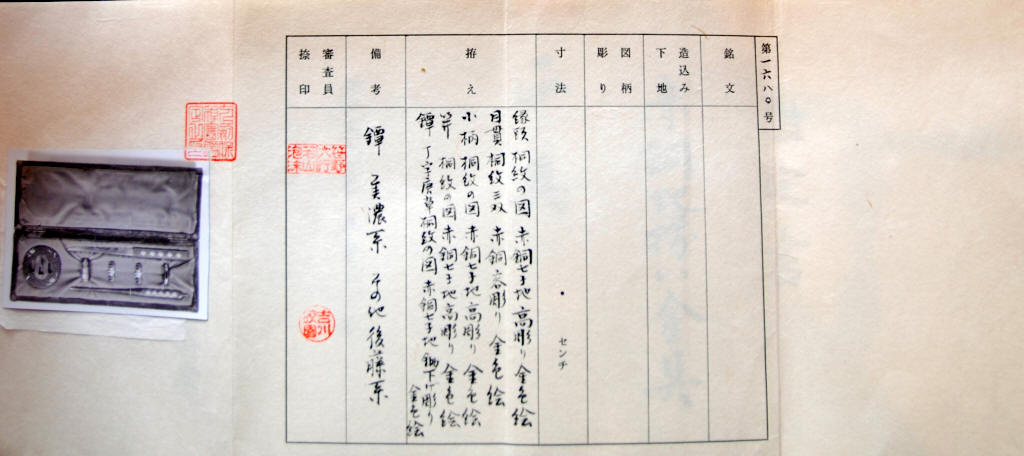 第一六八〇号
銘文
造込み
下地
図柄
彫り
寸法
センチ
拵え
縁頭 桐紋の図 赤銅七子地 高彫り 金色絵
目貫 桐紋三双 赤銅 容彫り 金色絵
小柄 桐紋の図 赤銅七子地 高彫り 金色絵
笄 桐紋の図 赤銅七子地 高彫り 金色絵
鐔 丁字唐草桐紋の図 赤銅七子地 鋤下げ彫り
金色絵
備考
鐔 美濃系 その他後藤系
審査員
捺印